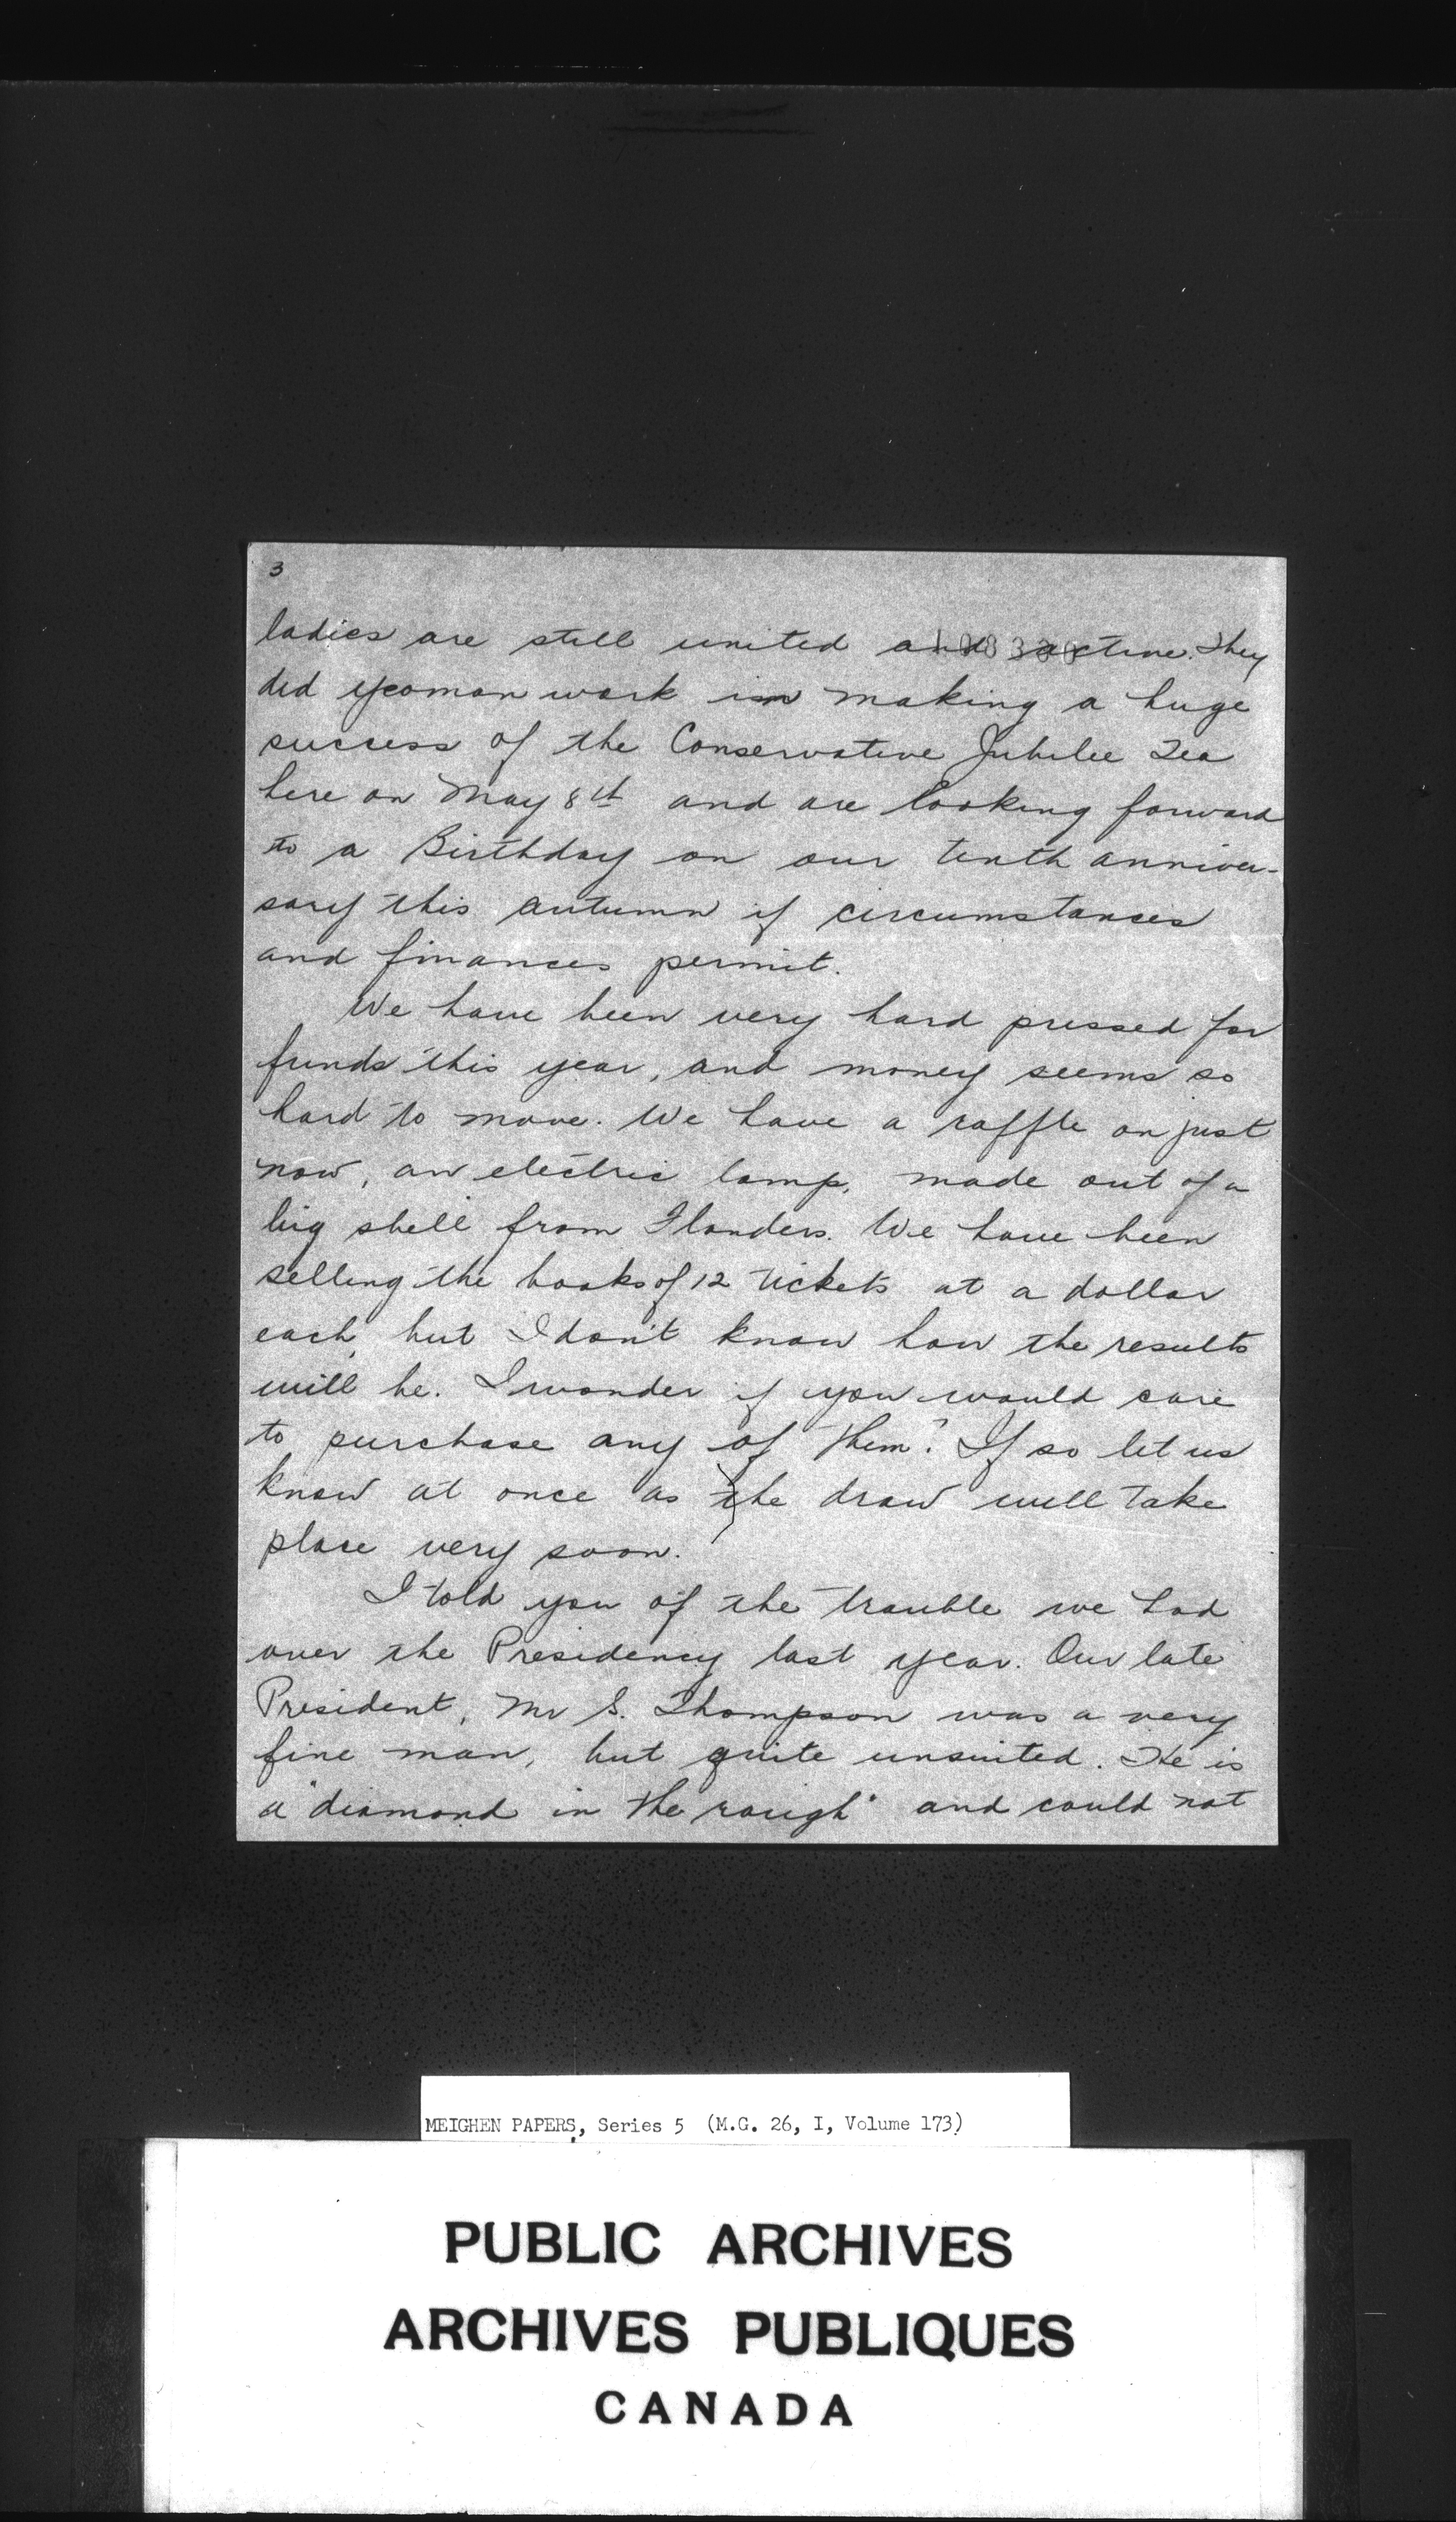 3
ladies are still united and active. They
did yeoman work in making a huge
success of the Conservative Jubilee Tea
here on May 8th and are looking forward
to a Birthday on our tenth anniver-
sary this autumn if circumstances
and finances permit.
We have been very hard pressed for
funds this year, and money seems so
hard to move. We have a raffle on just
now, an electric lamp, made out of a
big shell from Flanders. We have been
selling the books of 12 tickets at a dollar
each, but I don't know how the results
will be. I wonder if you would care
to purchase any of them? If so let us
know at once as the draw will take
place very soon.
I told you of the trouble we had
over the Presidency last year. Our late
President, Mr S. Thompson was a very
fine man, but quite unsuited. He is
a "diamond in the rough" and could not
MEIGHEN PAPERS, Series 5 (M.G. 26, I, Volume 173)
PUBLIC ARCHIVES
ARCHIVES PUBLIQUES
CANADA